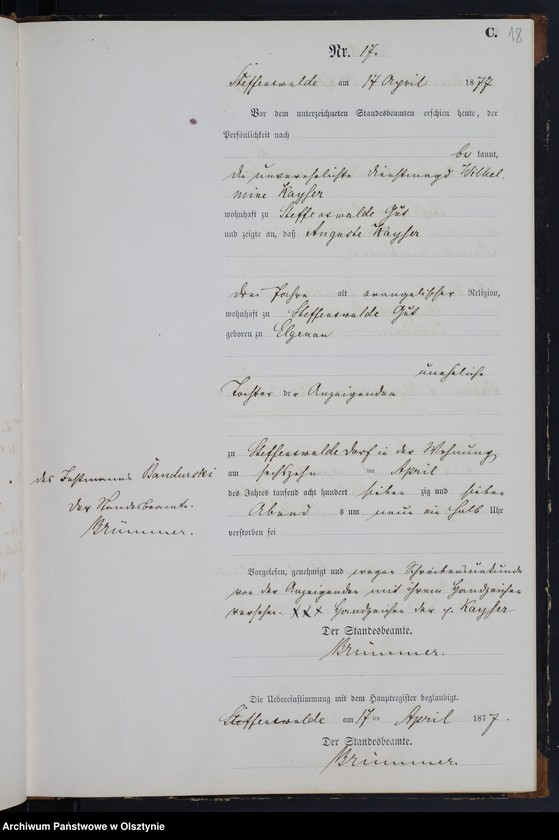 C. 18
Nr. 17.
Steffenswalde am 17 April 1877
Vor dem unterzeichneten Standesbeamten erschien heute, der
Persönlichkeit nach
be kannt,
die unverehelichte Dienstmagd Wilhel-
mine Kayser
wohnhaft zu Steffenswalde Gut
und zeigte an, daß Auguste Kayser
drei Jahre alt evangelischer Religion,
wohnhaft zu Steffenswalde Gut
geboren zu Elgenau
uneheliche
Tochter der Anzeigenden
zu Steffenswalde Dorf in der Wohnung
des Instmanns Bandurski
Der Standesbeamte.
Brümmer.
am sechszehn ten April
des Jahres tausend acht hundert sieben zig und sieben
Abends um neun ein halb Uhr
verstorben sei
Vorgelesen, genehmigt und wegen Schreibensunkunde
von der Anzeigenden mit ihrem Handzeichen
versehen. XXX Handzeichen der p. Kayser
Der Standesbeamte.
Brümmer.
Die Uebereinstimmung mit dem Hauptregister beglaubigt.
Steffenswalde am 17 ten April 1877.
Der Standesbeamte.
Brümmer.
Archiwum Państwowe w Olsztynie